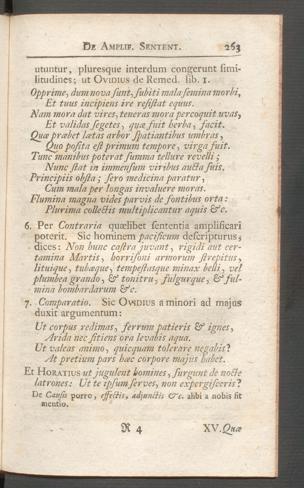 De Amplif. Sentent. 263
utuntur, pluresque interdum congerunt simi-
litudines; ut Ovidius de Remed. lib. 1.
Opprime, dum nova sunt, subiti mala semina morbi,
Et tuus incipiens ire resistat equus.
Nam mora dat vires, teneras mora percoquit uvas,
Et validas segetes, quæ fuit herba, facit.
Quæ præbet latas arbor spatiantibus umbras,
Quo posita est primum tempore, virga fuit.
Tunc manibus poterat summa tellure revelli;
Nunc stat in immensum viribus aucta suis.
Principiis obsta; sero medicina paratur,
Cum mala per longas invaluere moras.
Flumina magna vides parvis de fontibus orta:
Plurima collectis multiplicantur aquis &c.
6. Per Contraria quælibet sententia amplificari
poterit. Sic hominem pacificum descripturus,
dices: Non hunc castra juvant, rigidi aut cer-
tamina Martis, horrisoni armorum strepitus,
lituique, tubæque, tempestasque minax belli, vel
plumbea grando, & tonitru, fulgurque, & ful-
mina bombardarum &c.
7. Comparatio. Sic Ovidius a minori ad majus
duxit argumentum:
Ut corpus redimas, ferrum patieris & ignes,
Arida nec sitiens ora levabis aqua.
Ut valeas animo, quicquam tolerare negabis?
At pretium pars hæc corpore majus habet.
Et Horatius ut jugulent homines, surgunt de nocte
latrones: Ut te ipsum serves, non expergisceris?
De Causis porro, effectis, adjunctis &c. alibi a nobis fit
mentio.
R 4 XV. Quæ